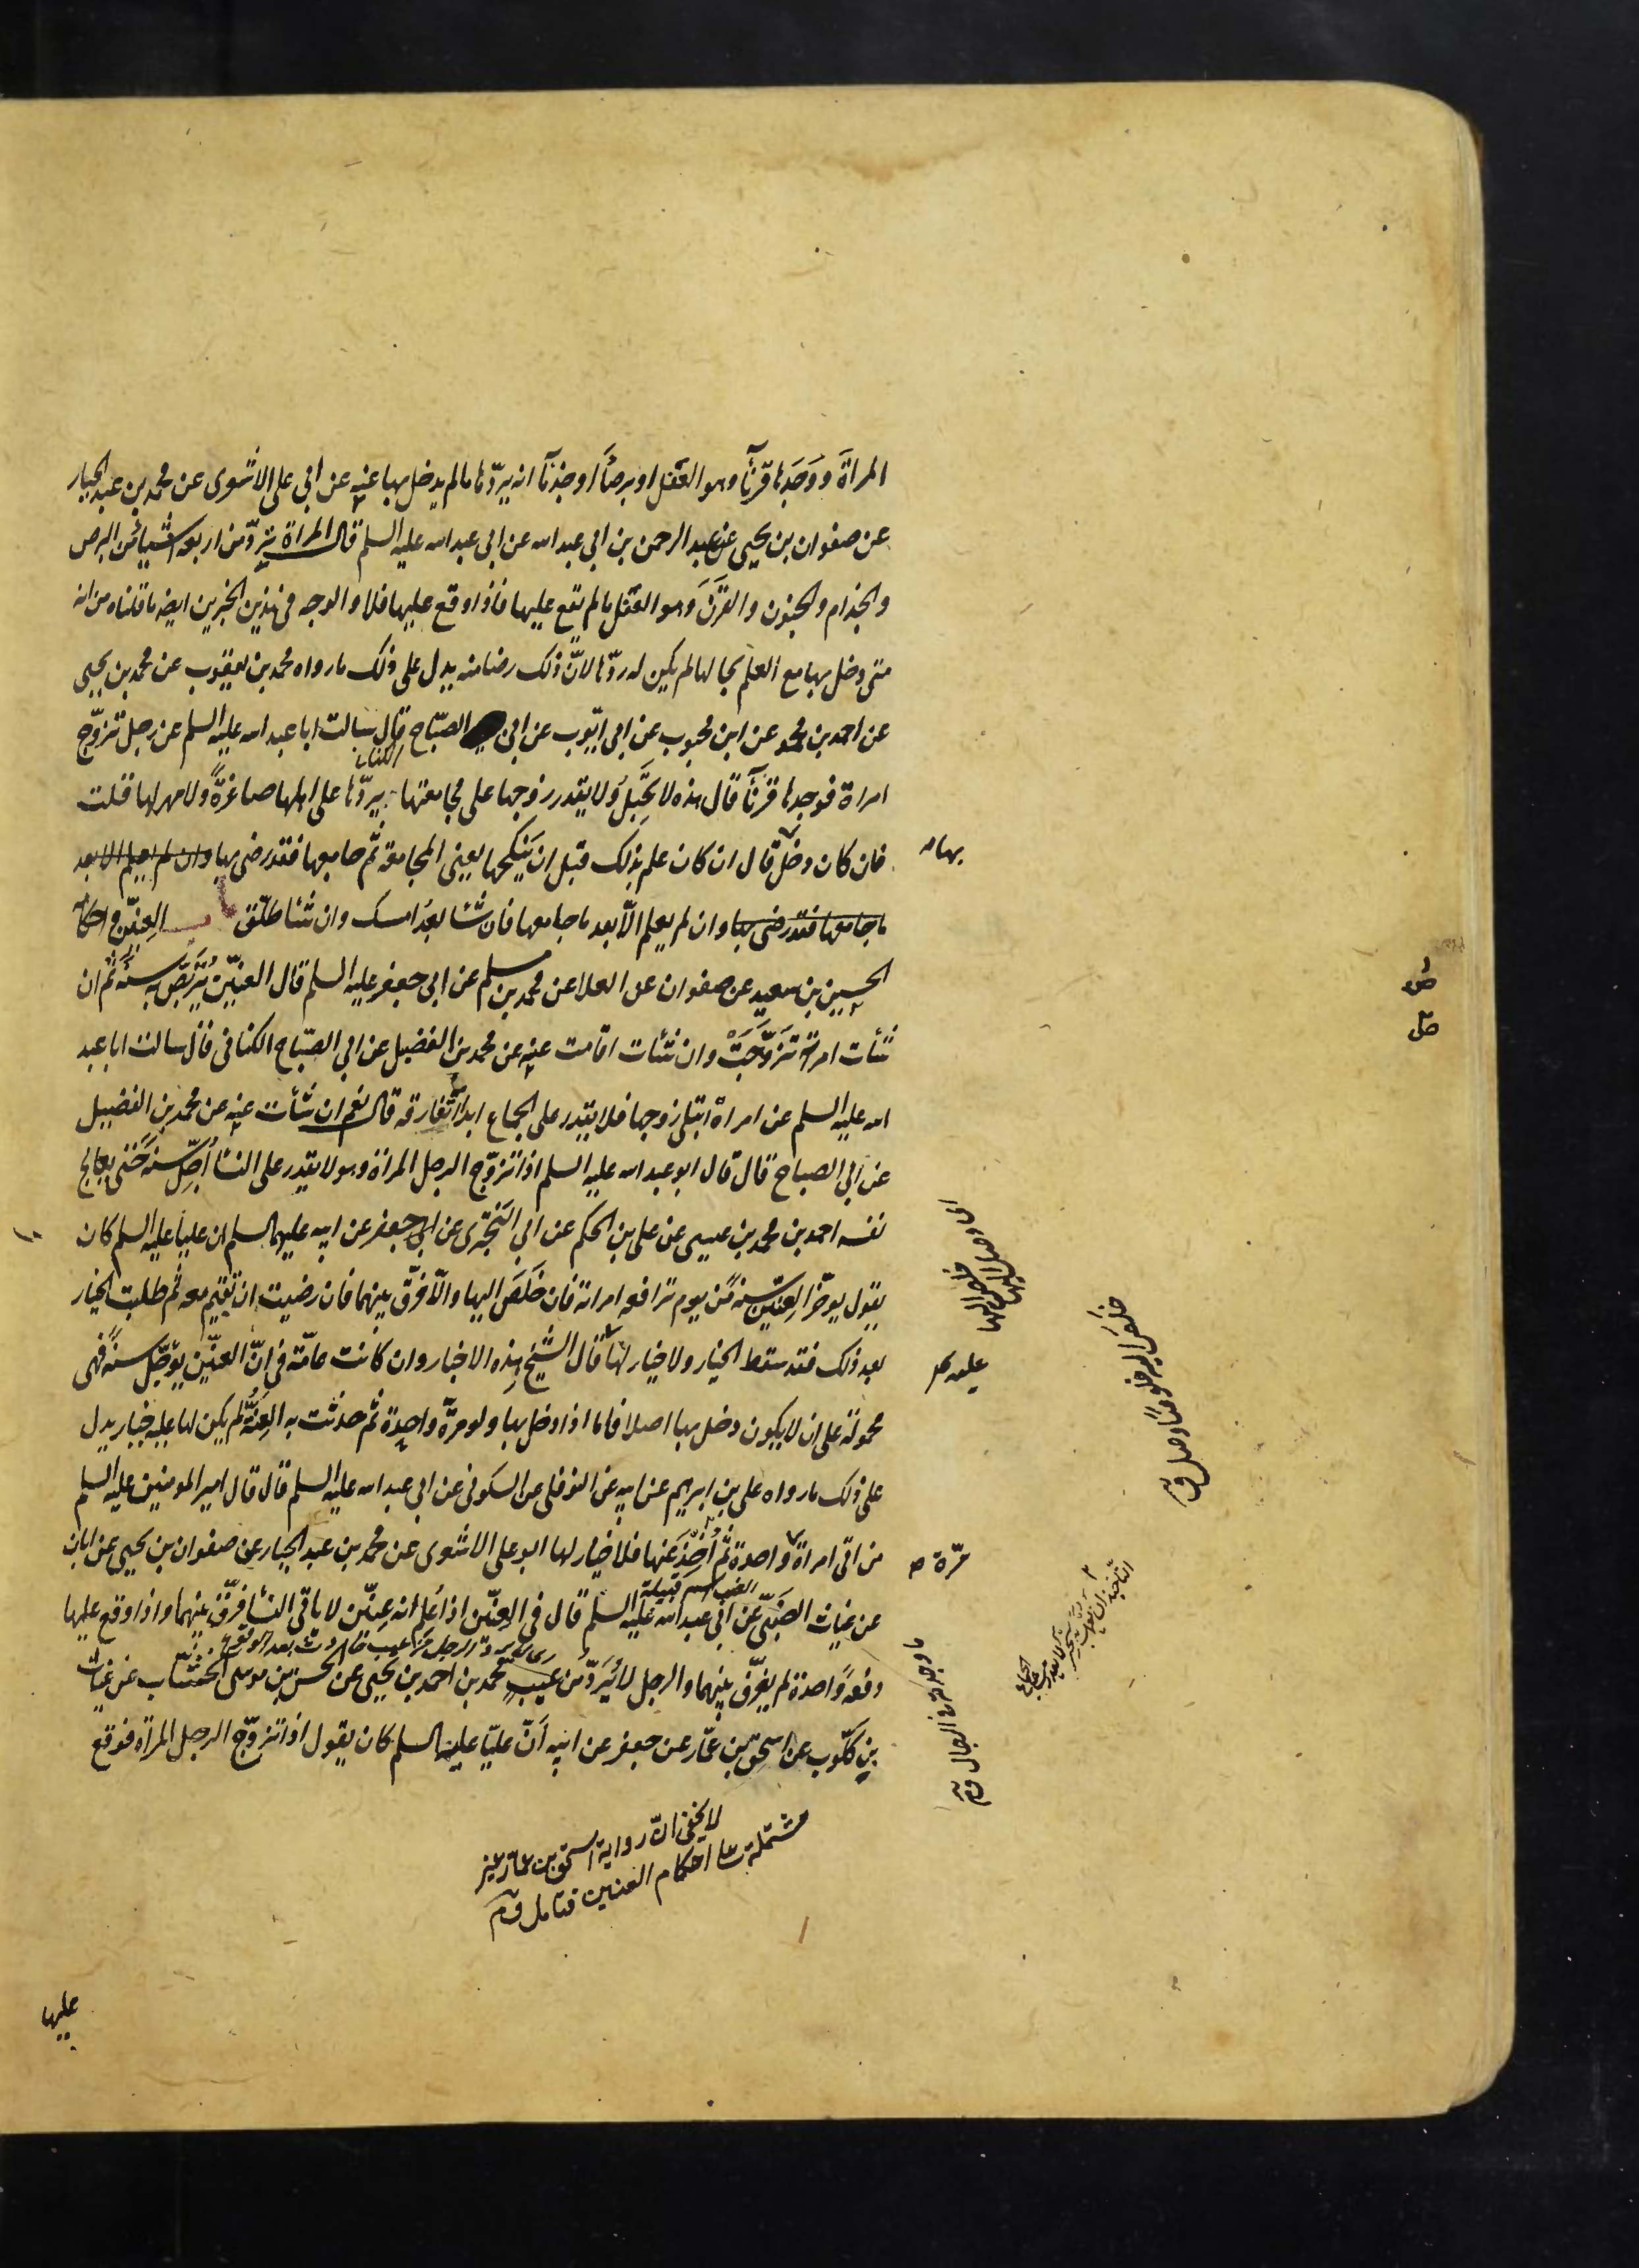 المراة ووجدها قرنآ وهو العفل او برصآ او جذمآ انه يردّها ما لم يدخل بها عنه عن ابي علي الاشعري عن محمد بن عبد الجبار
عن صفوان بن يحيى عن عبد الرحمن بن ابي عبد الله عن ابي عبد الله عليه السلم قال المراة تردّ من اربعة اشياء من البرص
والجذام والجنون والقرن وهو العفل ما لم يقع عليها فاذا وقع عليها فلا والوجه في هذين الخبرين ايضه ما قلناه من انه
متى دخل بها مع العلم بحالها لم يكن له ردّها لانّ ذلك رضا منه يدل على ذلك ما رواه محمد بن يعقوب عن محمد بن يحيى
عن احمد بن محمد عن ابن محبوب عن ابي ايّوب عن ابي الصبّاح قال سالت ابا عبد الله عليه السلم عن رجل تزوّج
امراة فوجدها قرنآ قال هذه لا تحبل ولا يقدر زوجها على مجامعتها يردّها على اهلها صاغرةً ولا مهر لها قلت
فان كان دخل قال ان كان علم بذلك قبل ان ينكحها يعني المجامعة ثم جامعها فقد رضى بها وان لم يعلم الا بعد
ما جامعها فقد رضى بها وان لم يعلم الّا بعد ما جامعها فان شئا بعد امسك وان شئا طلّق العنّين واحكامه
الحسين بن سعيد عن صفوان عن العلا عن محمد بن مسلم عن ابي جعفر عليه السلم قال العنّين يتربّص به سنة ثم ان
شئات امراته تزوّجت وان شئات اقامت عنه عن محمد بن الفضيل عن ابي الصبّاح الكناني قال سالت ابا عبد
الله عليه السلم عن امراة ابتلى زوجها فلا يقدر على الجماع ابدا اتفارقه قال نعم ان شئات عنه عن محمد بن الفضيل
عن ابي الصباح قال قال ابو عبد الله عليه السلم اذا تزوّج الرجل المراة وهو لا يقدر على النسا اجّل سنة حتى يعالج
نفسه احمد بن محمد بن عيسى عن علي بن الحكم عن ابي البختري عن ابي جعفر عن ابيه عليهما السلم ان عليا عليه السلم كان
يقول يوخّر العنّين سنة من يوم ترافعه امراته فان خلص اليها والّا فرّق بينهما فان رضيت ان تقيم معه ثم طلبت الخيار
بعد ذلك فقد سقط الخيار ولا خيار لها قال الشيخ هذه الاخبار وان كانت عامّة في انّ العنّين يوجّل سنة فهى
محمولة على ان لا يكون دخل بها اصلا فاما اذا دخل بها ولو مرّة واحدة ثم حدثت به العنّة لم يكن لها عليه خيار يدل
على ذلك ما رواه علي بن ابرهيم عن ابيه عن النوفلي عن السكوني عن ابي عبد الله عليه السلم قال قال امير المومنين عليه السلم
من اتى امراة واحدة ثم اخّذ عنها فلا خيار لها ابو علي الاشعري عن محمد بن عبد الجبار عن صفوان بن يحيى عن ابان
عن غياث الضبّي عن ابي عبد الله عليه السلم قال في العنّين اذا علم انه عنّين لا ياتي النسا فرّق بينهما واذا وقع عليها
دفعة واحدة لم يفرّق بينهما والرجل لا يردّ من عيب محمد بن احمد بن يحيى عن الحسن بن موسى الخشّاب عن غياث
بن كلّوب عن اسحق بن عمّار عن جعفر عن ابيه انّ عليّا عليه السلم كان يقول اذا تزوّج الرجل المراة فوقع
لا يخفى انّ رواية اسحق بن عمّار غير
مشتملة على احكام العنين فتامل
بها
مرّة
عليها